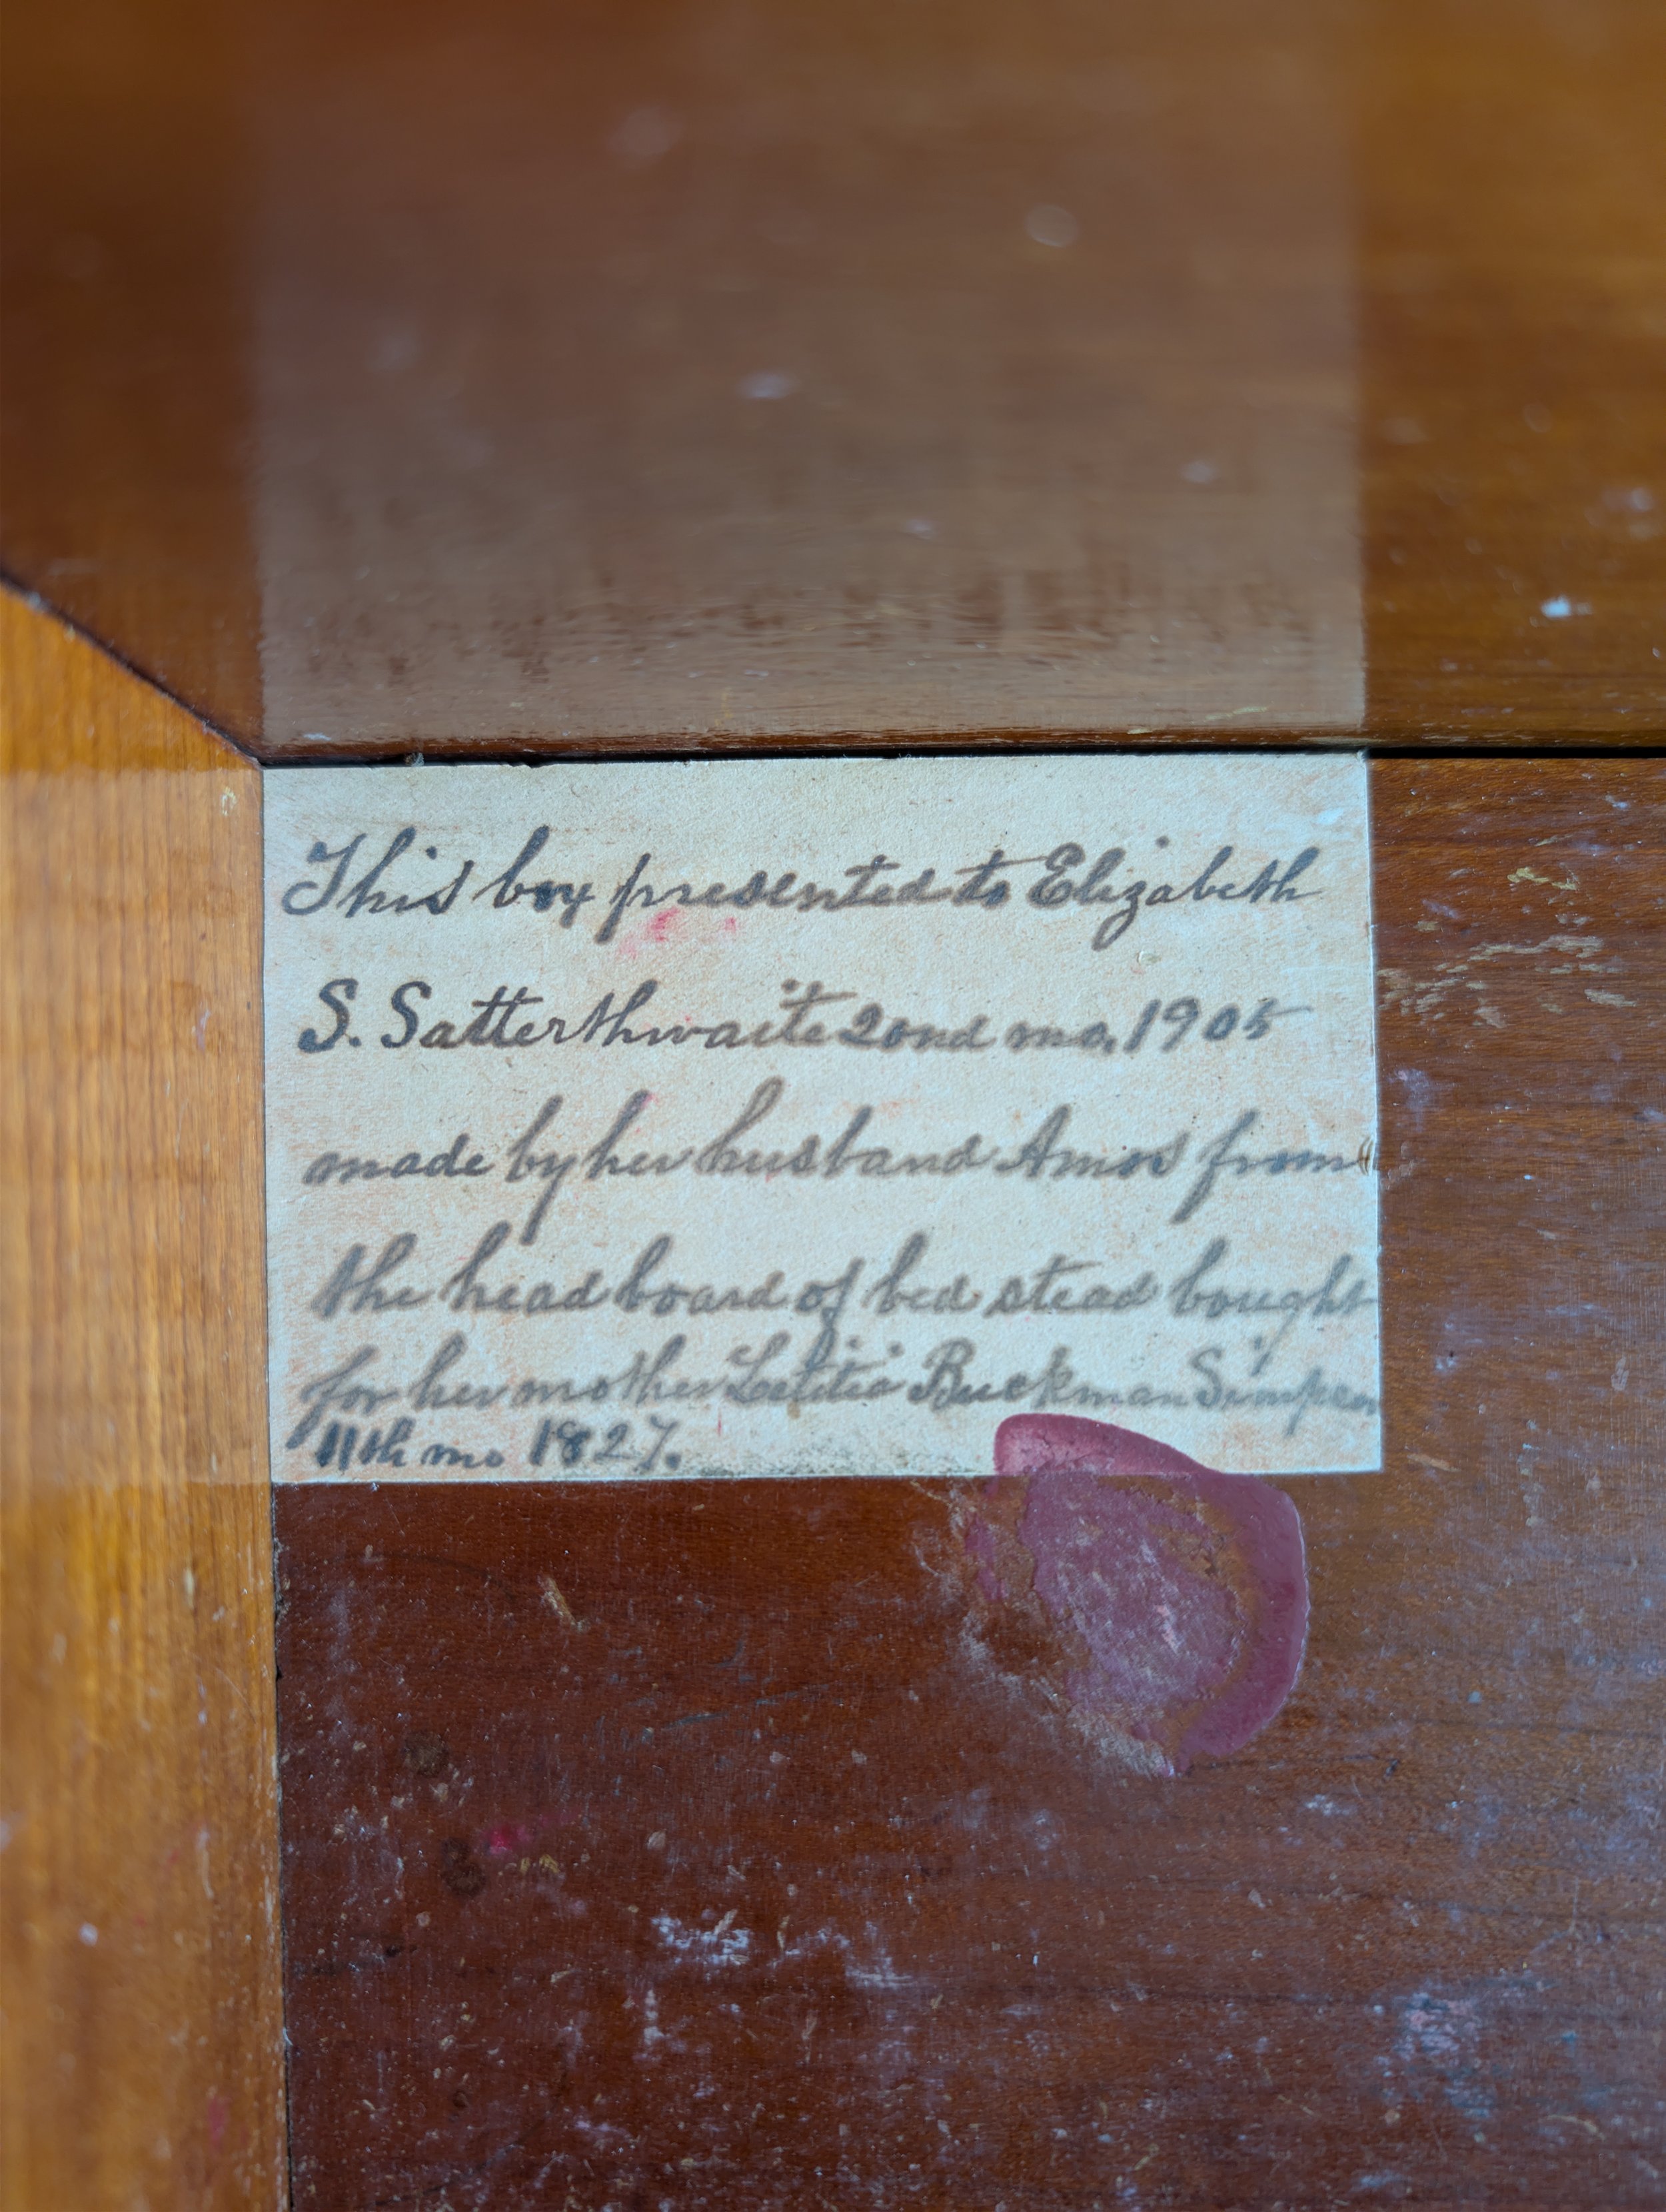 This box presented to Elizabeth
S. Satterthwaite 2ond mo. 1905
made by her husband Amos from
the head board of bed stead bought
for her mother Letitia Buckman Simpson
11th mo 1827.